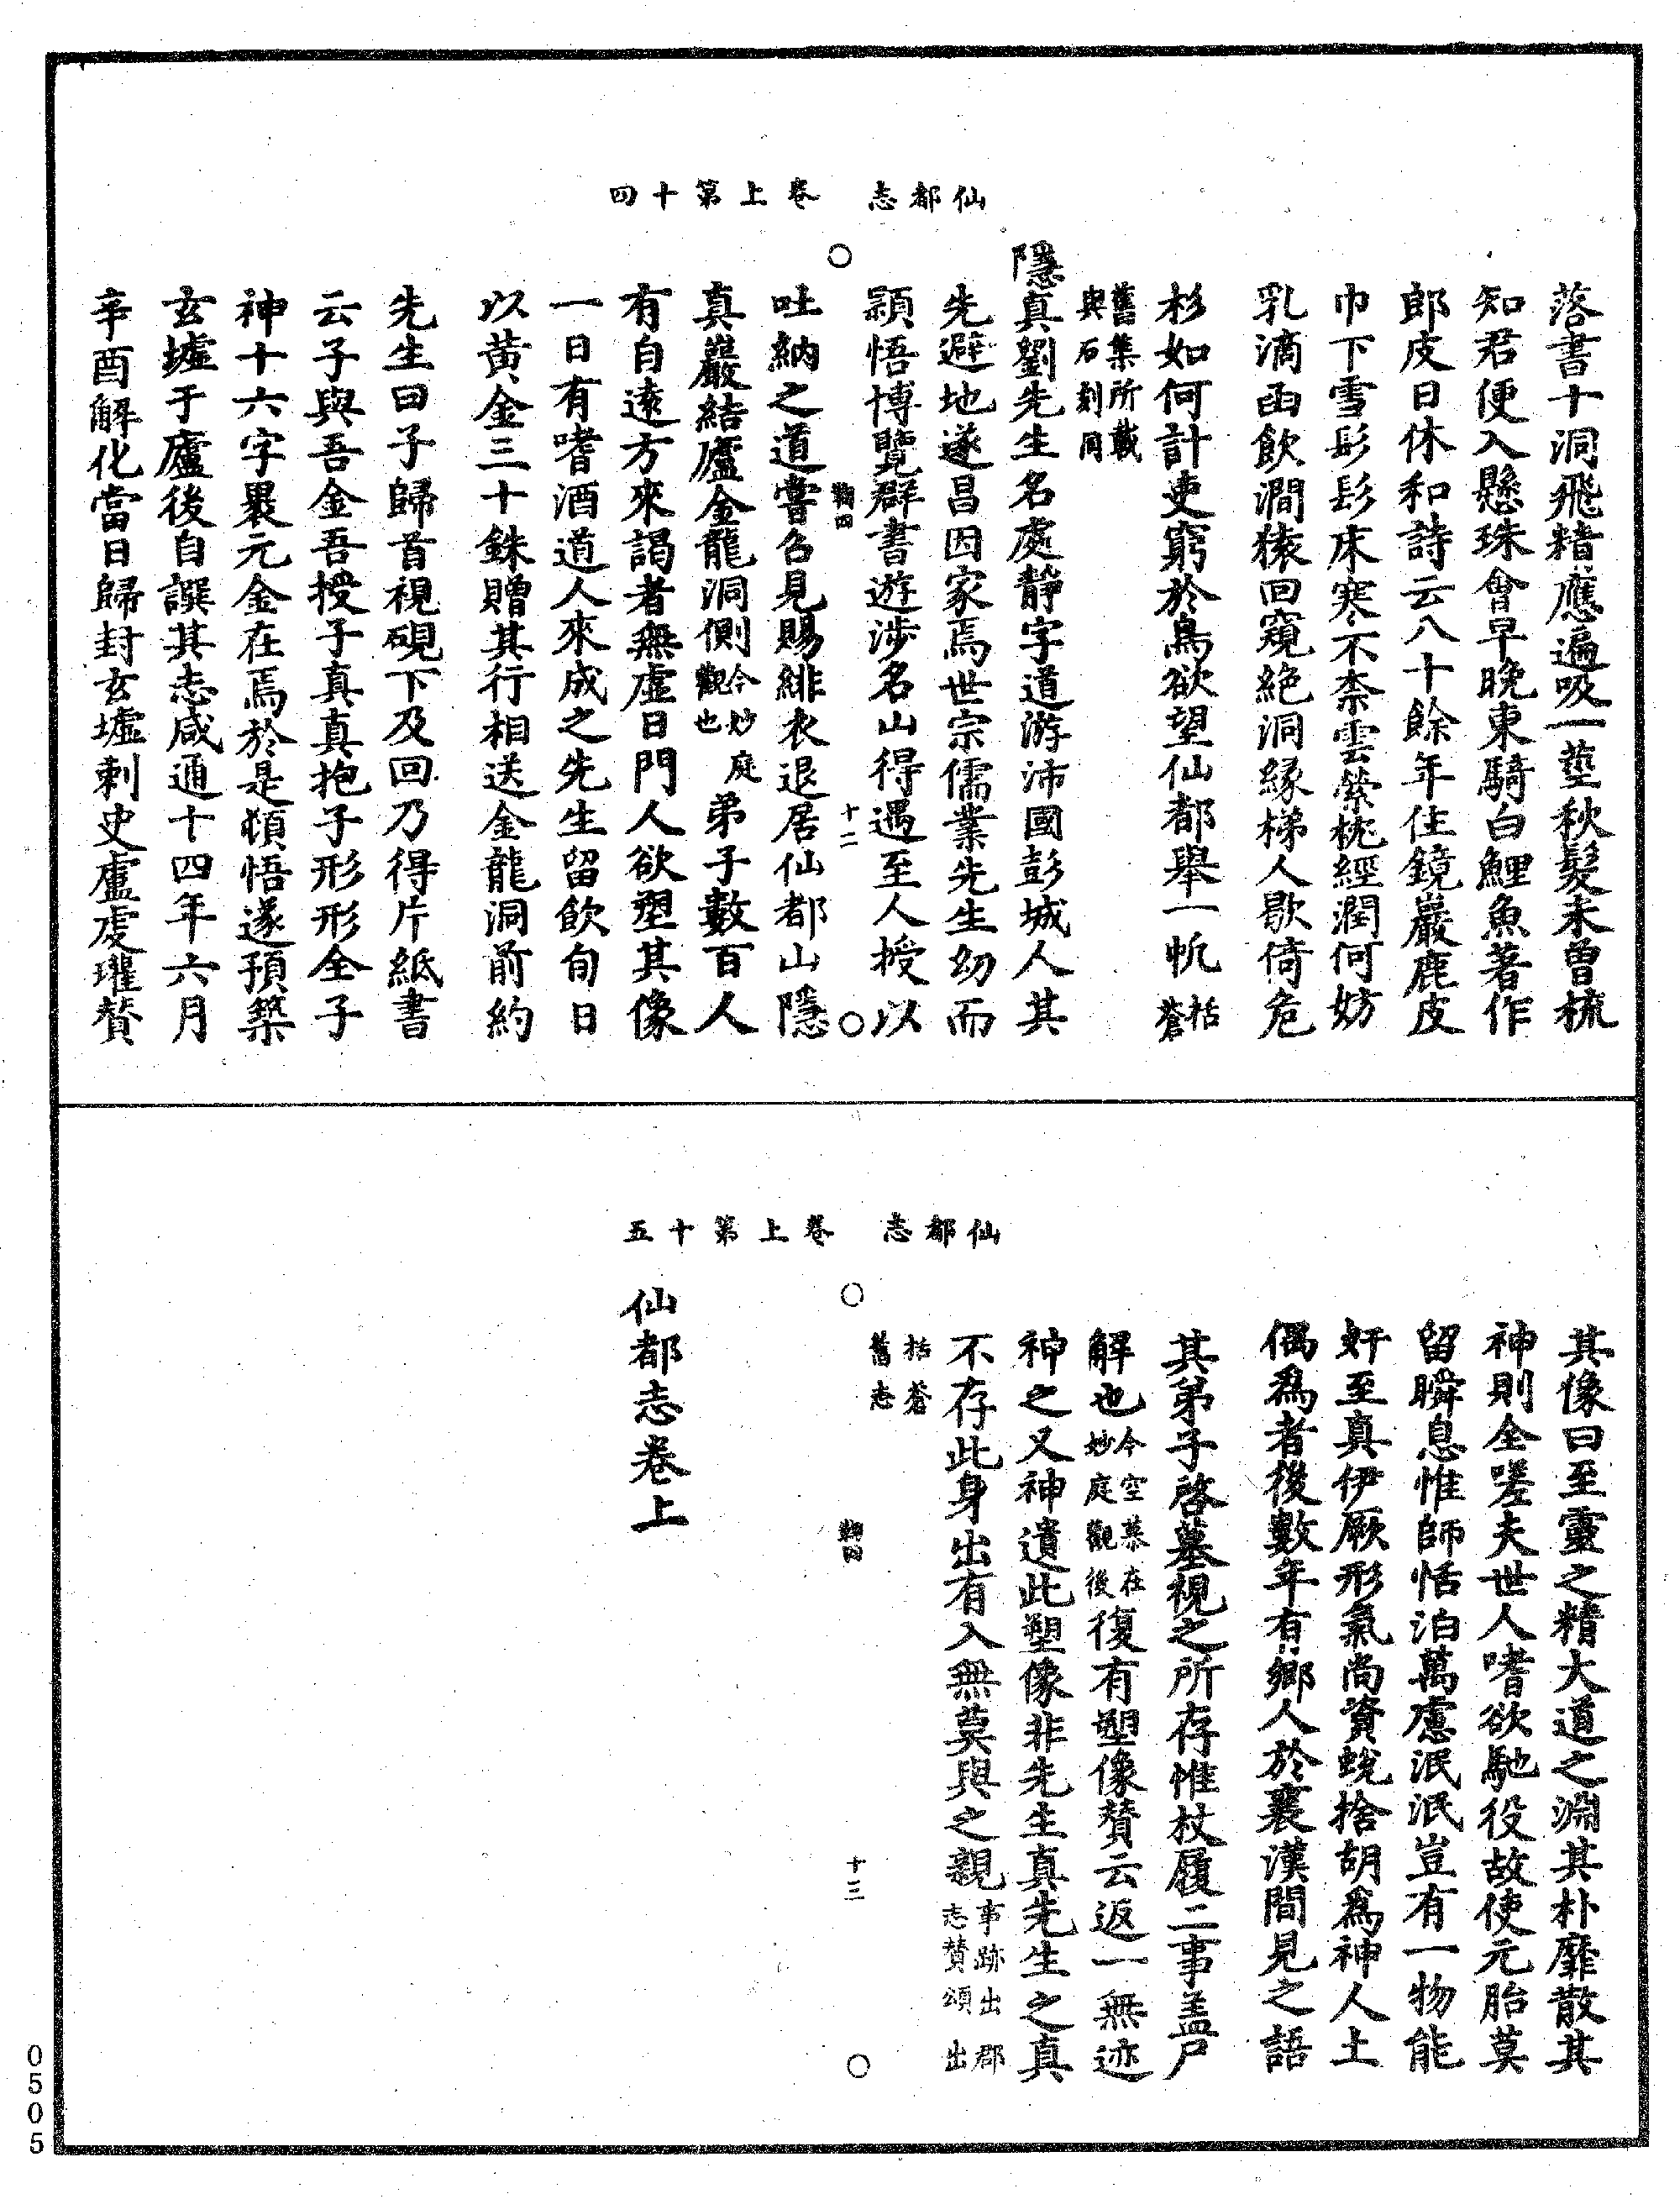 仙都志　卷上第十四
落書十洞飛精應遍吸一莖秋髮未曾梳
知君便入懸珠會早晚東騎白鯉魚著作
郎皮日休和詩云八十餘年住鏡巖鹿皮
巾下雪髟髟床寒不柰雲縈枕經潤何妨
乳滴函飲澗猿回窺絶洞緣梯人歇倚危
杉如何計吏窮於鳥欲望仙都舉一帆括蒼
舊集所載
與石刻同
隱真劉先生名處靜字道游沛國彭城人其
先避地遂昌因家焉世宗儒業先生幼而
穎悟博覽群書遊涉名山得遇至人授以
鞠四　十二
吐納之道嘗召見賜緋衣退居仙都山隱
真巖結廬金龍洞側今妙庭觀也弟子數百人
有自遠方來謁者無虛日門人欲塑其像
一日有嗜酒道人來成之先生留飲旬日
以黃金三十銖贈其行相送金龍洞前約
先生曰子歸首視硯下及回乃得片紙書
云子與吾金吾授子真真抱子形形全子
神十六字褁元金在焉於是頓悟遂預築
玄墟于廬後自譔其志咸通十四年六月
辛酉解化當日歸封玄墟刺史盧虔瓘賛
仙都志　卷上第十五
其像曰至靈之精大道之淵其朴靡散其
神則全嗟夫世人嗜欲馳役故使元胎莫
留瞬息惟師恬泊萬慮泯泯豈有一物能
奸至真伊厥形氣尚資蛻捨胡爲神人土
偶爲者後數年有鄉人於襄漢間見之語
其弟子啓墓視之所存惟杖履二事盖尸
解也今空墓在妙庭觀後復有塑像賛云返一無迹
神之又神遺此塑像非先生真先生之真
不存此身出有入無莫與之親事跡出郡志賛頌出
括蒼
舊志
鞠四　十三
仙都志卷上
0505